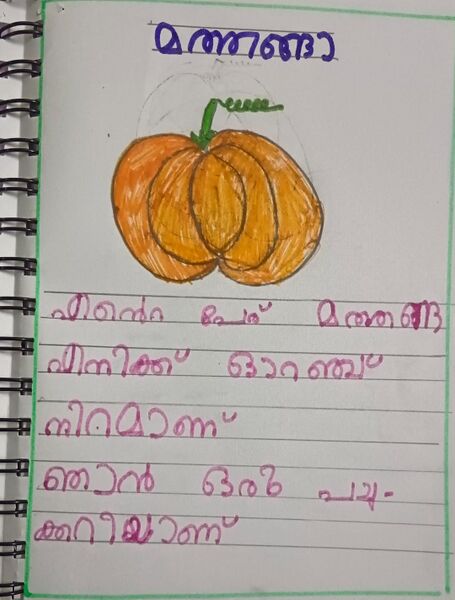 മത്തങ്ങാ
എൻെറ പേര് മത്തങ്ങ
എനിക്ക് ഓറഞ്ച്
നിറമാണ്
ഞാൻ ഒരു പച്ച-
ക്കറിയാണ്